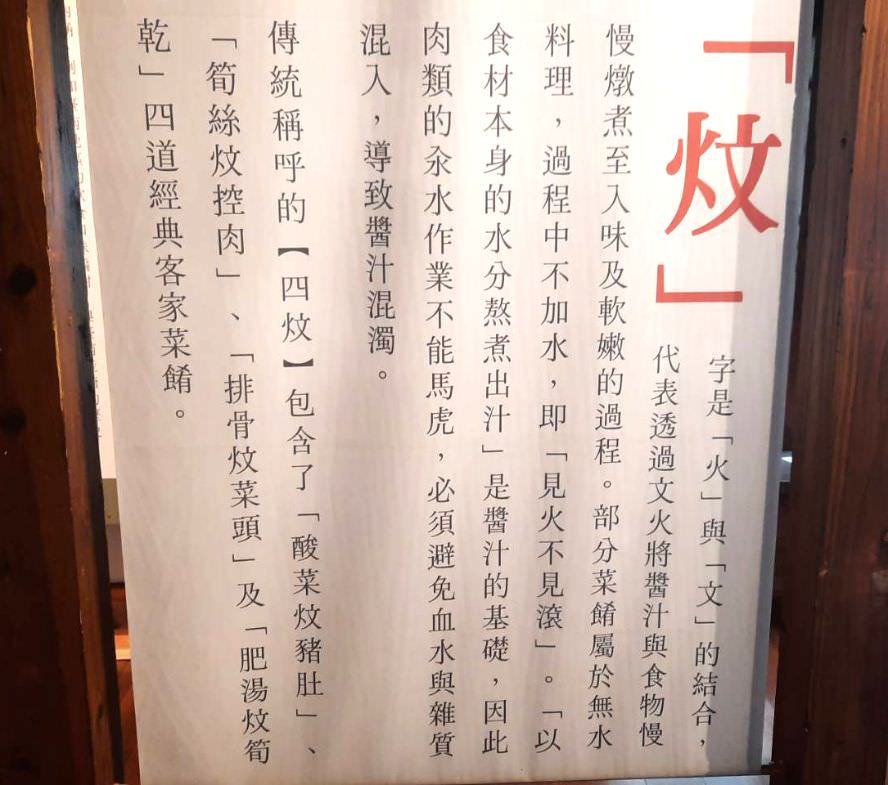 「炆」
字是「火」與「文」的結合，
代表透過文火將醬汁與食物慢
慢燉煮至入味及軟嫩的過程。部分菜餚屬於無水
料理，過程中不加水，即「見火不見滾」。「以
食材本身的水分熬煮出汁」是醬汁的基礎，因此
肉類的汆水作業不能馬虎，必須避免血水與雜質
混入，導致醬汁混濁。
傳統稱呼的【四炆】包含了「酸菜炆豬肚」、
「筍絲炆控肉」、「排骨炆菜頭」及「肥湯炆筍
乾」四道經典客家菜餚。